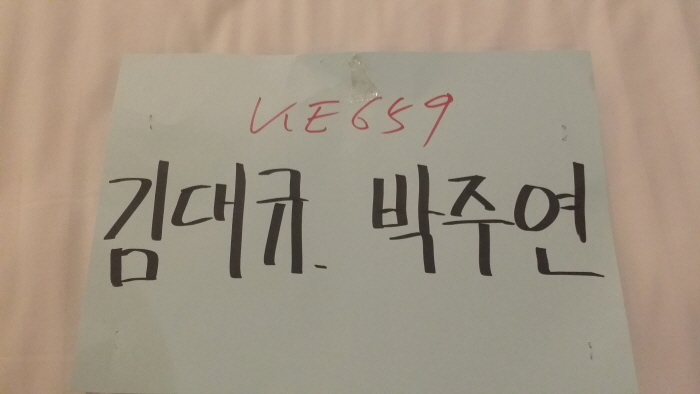 KE659
김대규. 박주연